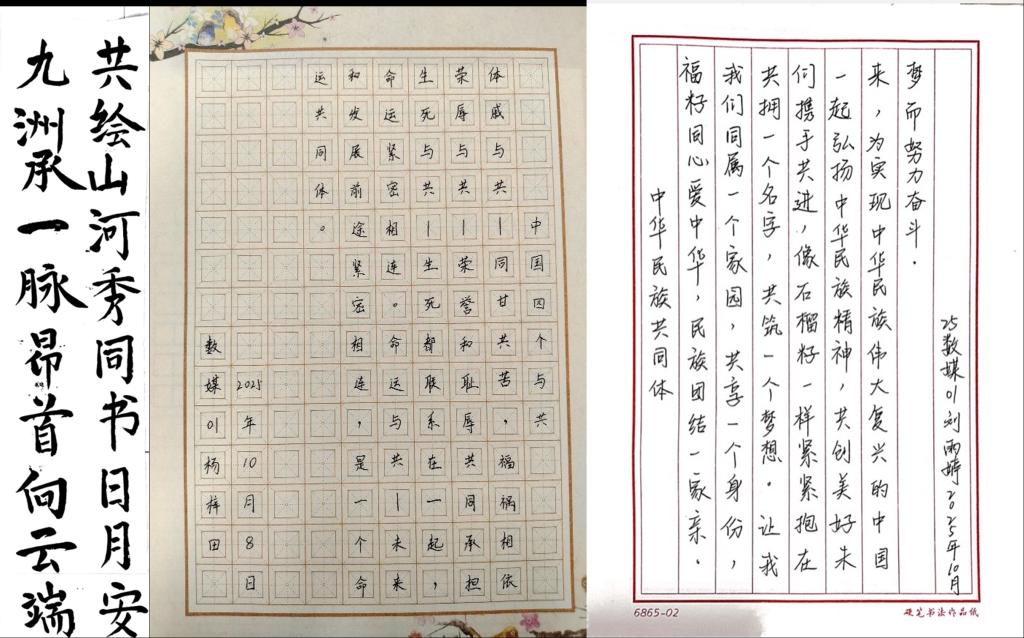 共绘山河秀同书日月安
九洲承一脉昂首向云端
中国四个与共
体戚与共—同甘共苦，福祸相依
荣辱与共—荣誉和耻辱共同承担
生死与共—生死都联系在一起，
命运紧密相连。命运与共—未来
和发展前途紧密相连，是一个命
运共同体。
2025年10月8日
数媒01杨梓田
中华民族共同体
福籽同心爱中华，民族团结一家亲.
我们同属一个家园，共享一个身份，
共拥一个名字，共筑一个梦想。让我
们携手共进，像石榴籽一样紧紧抱在
一起弘扬中华民族精神，共创美好未
来，为实现中华民族伟大复兴的中国
梦而努力奋斗.
25数媒01刘雨婷2025年10月
6865-02
硬笔书法作品纸